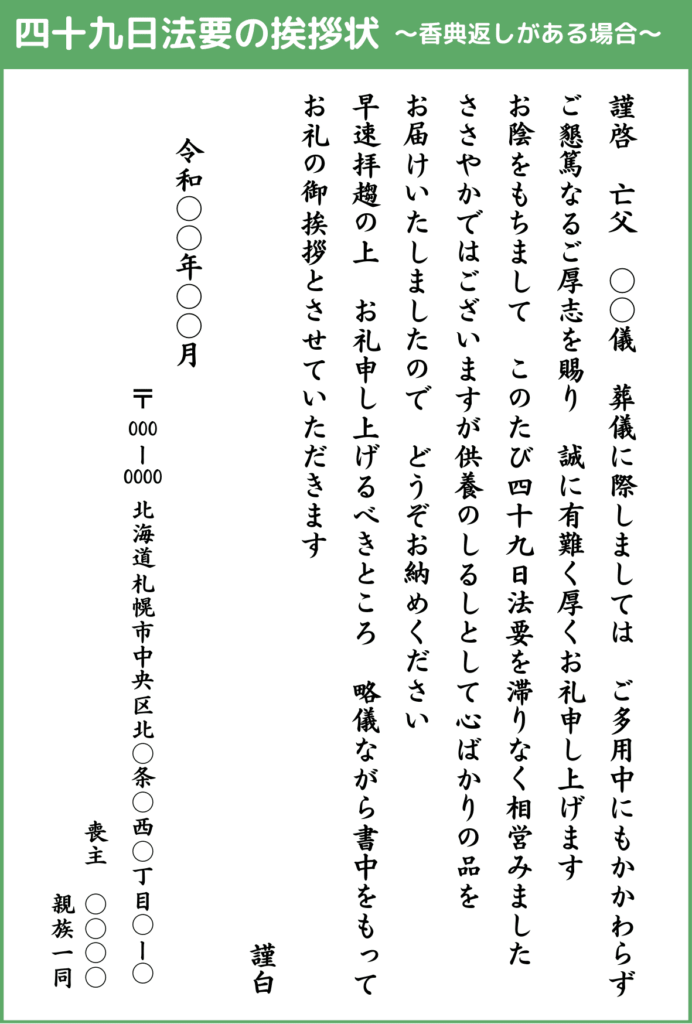 四十九日法要の挨拶状 ～香典返しがある場合～
謹啓　亡父　〇〇儀　葬儀に際しましては　ご多用中にもかかわらず
ご懇篤なるご厚志を賜り　誠に有難く厚くお礼申し上げます
お陰をもちまして　このたび四十九日法要を滞りなく相営みました
ささやかではございますが供養のしるしとして心ばかりの品を
お届けいたしましたので　どうぞお納めください
早速拝趨の上　お礼申し上げるべきところ　略儀ながら書中をもって
お礼の御挨拶とさせていただきます
謹白
令和〇〇年〇〇月
〒000ー0000 北海道札幌市中央区北〇条〇西〇丁目〇ー〇
喪主　〇〇〇〇
親族一同